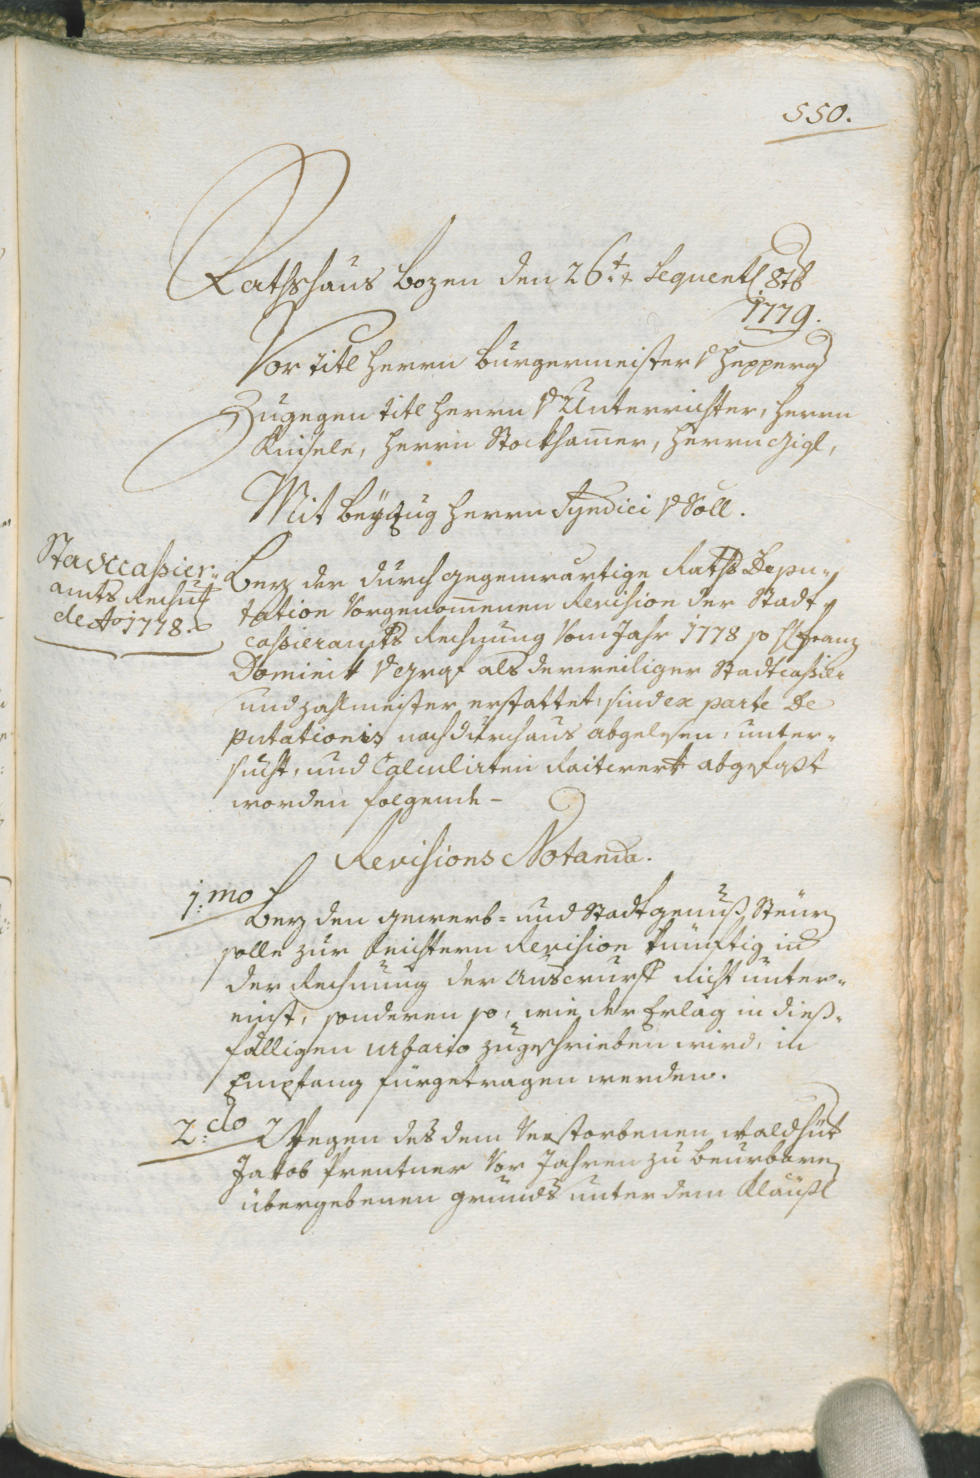 550.
Rathshaus Bozen den 26t. Sequentl 8tb
1779.
Vor titl Herrn Burgermeister v Hepperg
Zugegen titl Herrn v Unterrichter, Herrn
Kuisele, Herrn Stockham̄er, Herrn Gigl,
Mit beyzug Herrn Syndici v Söll.
Stattcassier-
amts Rechnung
de Ao 1778.
Bey der durch gegenwärtige Raths Depu-
tation Vorgenom̄enen Revision der Stadt
cassieramts Rechnung Vom Jahr 1778 so H Franz
Dominik v Graf als derweiliger Stadtcassier
und Zahlmeister erstattet, sind ex parte De
putationis nach durchaus abgelesen, unter-
sucht, und Calculirten Raitwerk abgefaßt
worden folgende-
Revisions Notanda.
1.mo Bey den gewerb- und Stadtgenuß Steur
solle zur leichtern Revision künftig in
der Rechnung der Auswurf nicht unter-
einst, sonderen so, wie der Erlag in dieß-
fälligen urbario zugeschrieben wird, in
Empfang fürgetragen werden.
2.do Wegen des dem Verstorbenen waldhüt
Jakob Prentner Vor Jahren zu beurbaren
übergebenen grunds unter dem Kläußl